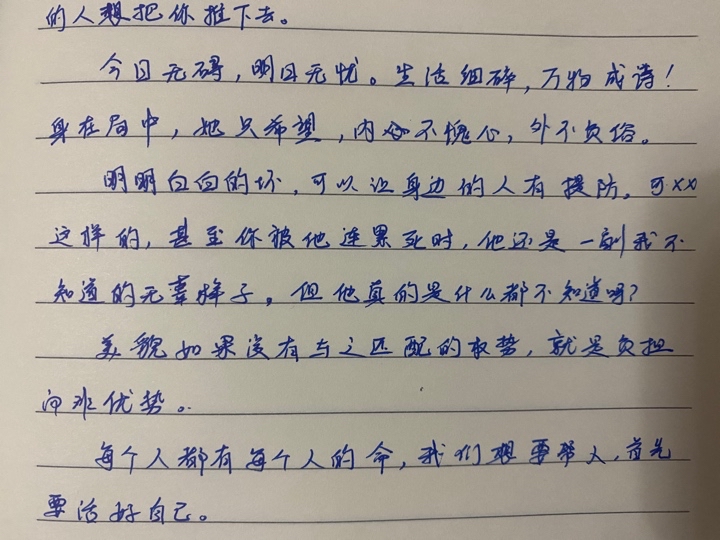 的人想把你推下去。
今日无碍，明日无忧。生活细碎，万物成诗！
身在局中，她只希望，内不愧心，外不负俗。
明明白白的坏，可以让身边的人有提防。可xx
这样的，甚至你被他连累死时，他还是一副我不
知道的无辜样子，但他真的是什么都不知道吗？
美貌如果没有与之匹配的权势，就是负担
而非优势。
每个人都有每个人的命，我们想要帮人，首先
要活好自己。